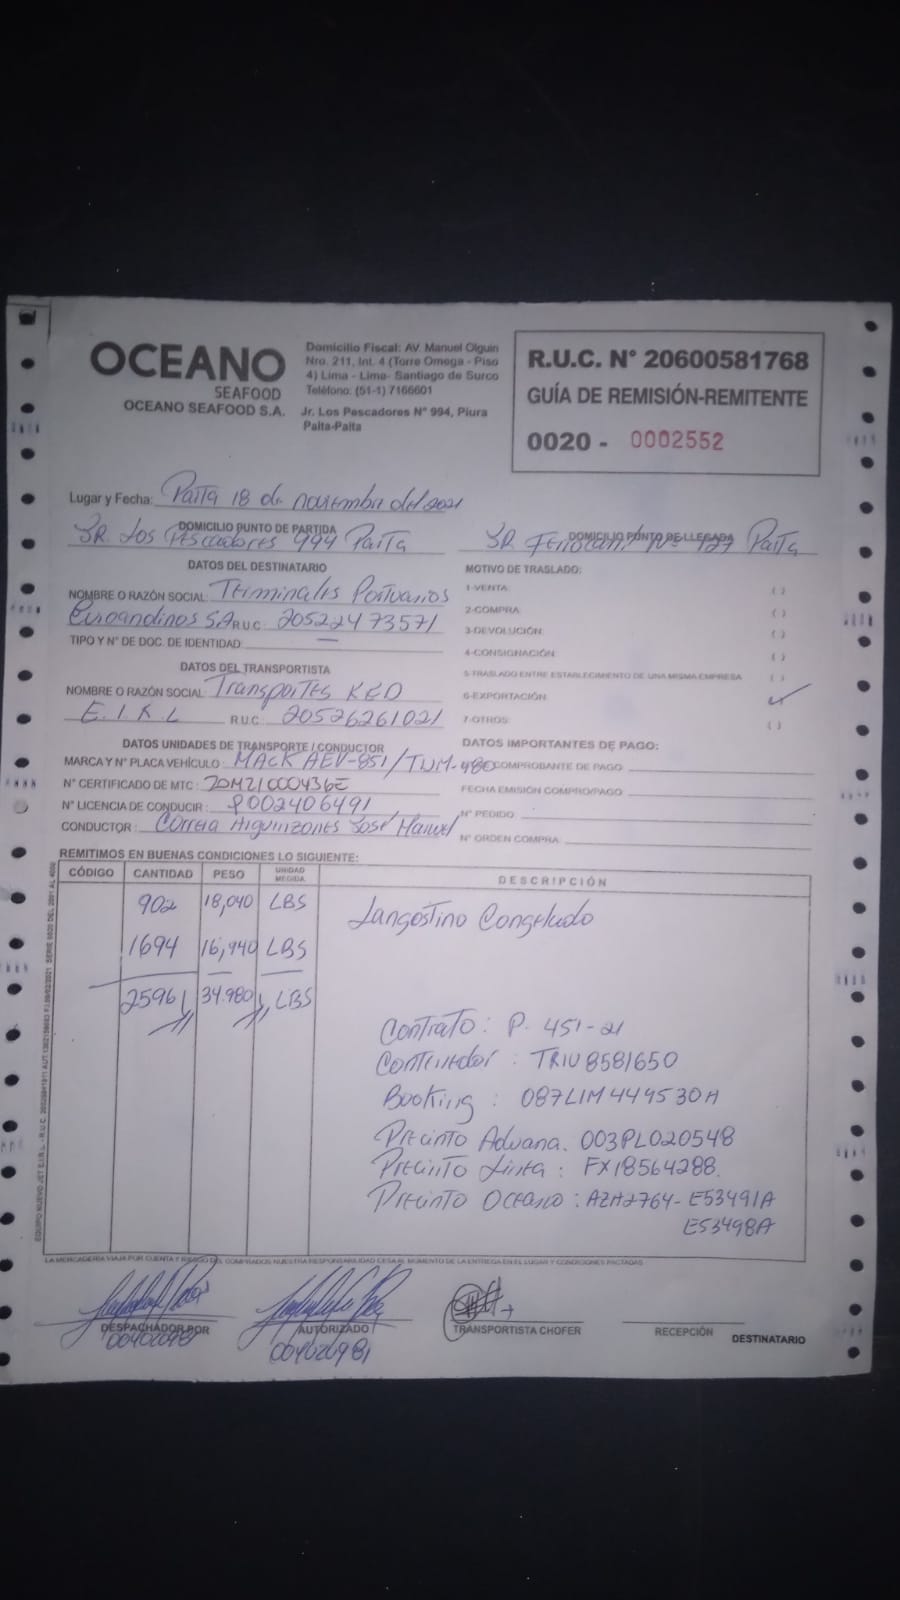 OCEANO
SEAFOOD
OCEANO SEAFOOD S.A.
Domicilio Fiscal: AV. Manuel Olguin
Nro. 211, Int. 4 (Torre Omega - Piso
4) Lima - Lima- Santiago de Surco
Teléfono: (51-1) 7166601
Jr. Los Pescadores N° 994, Piura
Paita-Paita
R.U.C. N° 20600581768
GUÍA DE REMISIÓN-REMITENTE
0020 - 0002552
Lugar y Fecha: Paita 18 de noviembre del 2021
DOMICILIO PUNTO DE PARTIDA
JR. Los Pescadores 994 Paita
DOMICILIO PUNTO DE LLEGADA
JR N° 127 Paita
DATOS DEL DESTINATARIO
NOMBRE O RAZÓN SOCIAL: Terminales Portuarios
Euroandinos S.A R.U.C. 20522473571
TIPO Y N° DE DOC. DE IDENTIDAD: —
DATOS DEL TRANSPORTISTA
NOMBRE O RAZÓN SOCIAL: Transportes KED
E.I.R.L R.U.C.: 20526261021
DATOS UNIDADES DE TRANSPORTE / CONDUCTOR
MARCA Y N° PLACA VEHÍCULO: MACK AEV-851/TUM-980
N° CERTIFICADO DE MTC: 20M21000436E
N° LICENCIA DE CONDUCIR: P002406491
CONDUCTOR: Correa José Manuel
MOTIVO DE TRASLADO:
1-VENTA ( )
2-COMPRA ( )
3-DEVOLUCIÓN ( )
4-CONSIGNACIÓN ( )
5-TRASLADO ENTRE ESTABLECIMIENTO DE UNA MISMA EMPRESA ( )
6-EXPORTACIÓN ✓
7-OTROS: ( )
DATOS IMPORTANTES DE PAGO:
COMPROBANTE DE PAGO
FECHA EMISIÓN COMPRO/PAGO:
N° PEDIDO
N° ORDEN COMPRA:
REMITIMOS EN BUENAS CONDICIONES LO SIGUIENTE:
CÓDIGO CANTIDAD PESO UNIDAD MEDIDA DESCRIPCIÓN
902 18,040 LBS Langostino Congelado
1694 16,940 LBS
2596 34.980 LBS
Contrato: P. 451-21
Contenedor: TRIU8581650
Booking: 087LIM444530A
Precinto Aduana. 003PL020548
Precinto Linea: FX18564288.
Precinto Oceano: AZA2764- E53491A
E53498A
LA MERCADERIA VIAJA POR CUENTA Y RIESGO DEL COMPRADOR NUESTRA RESPONSABILIDAD CESA AL MOMENTO DE LA ENTREGA EN EL LUGAR Y CONDICIONES PACTADAS
DESPACHADOR POR
AUTORIZADO
TRANSPORTISTA CHOFER
RECEPCIÓN DESTINATARIO